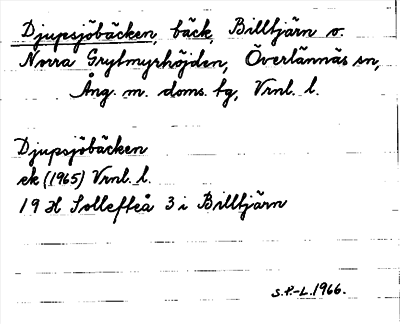 Djupsjöbäcken, bäck, Billtjärn o.
Norra Grytmyrhöjden, Överlännäs sn,
Ång. m. doms. tg, Vrnl. l.
Djupsjöbäcken
ek (1965) Vrnl. l.
19 H Sollefteå 3 i Billtjärn
S.P.-L. 1966.